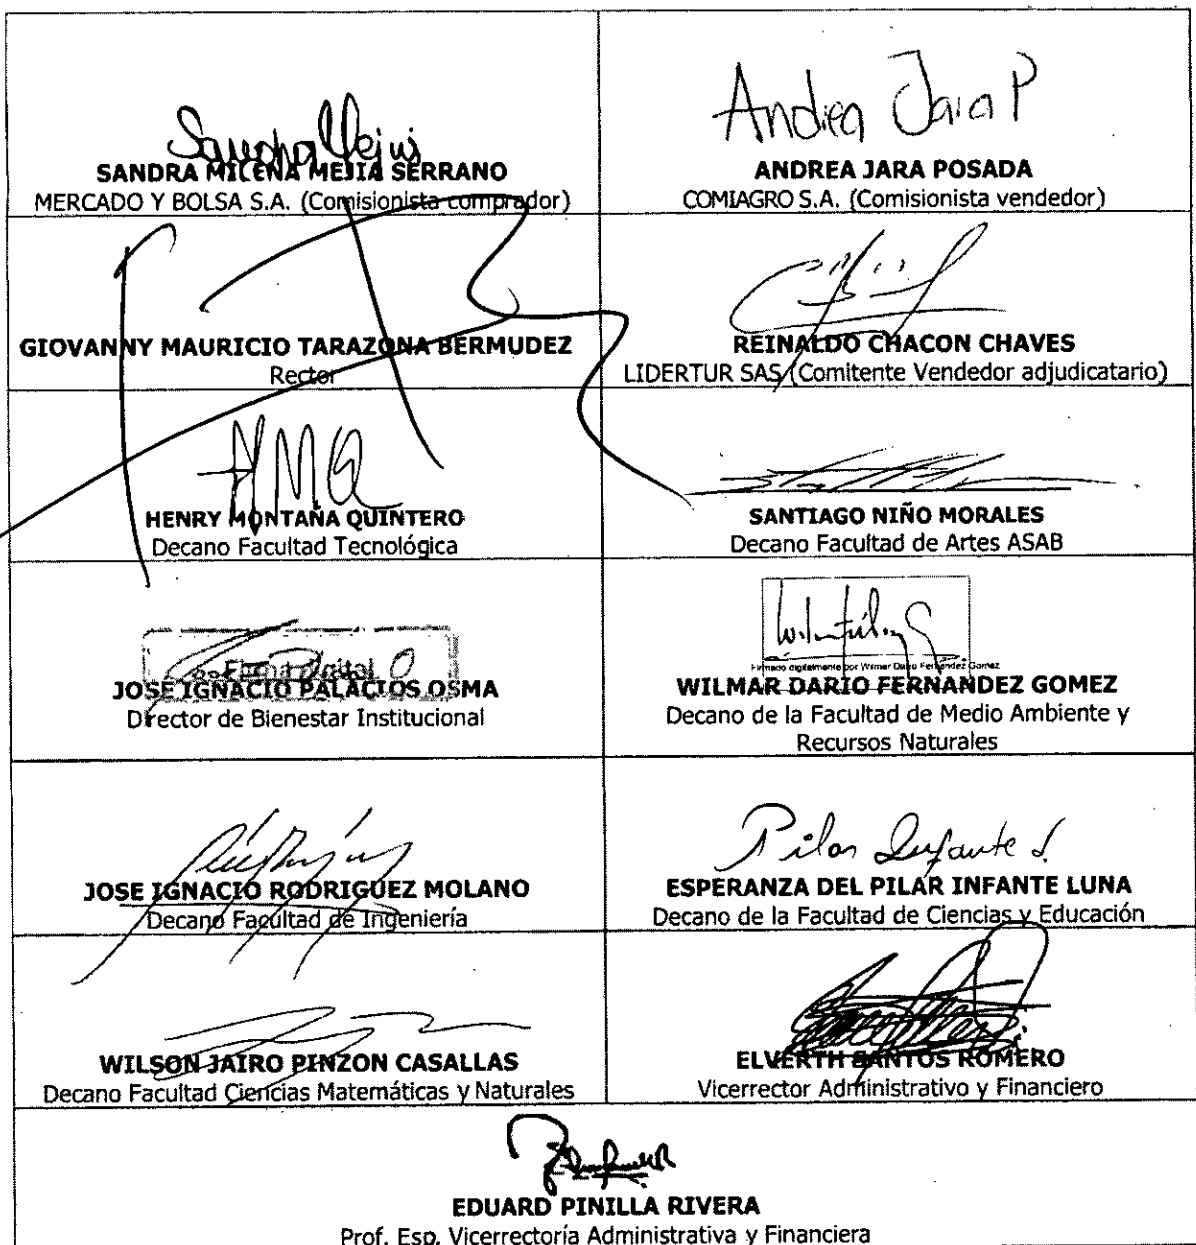 Sandra Mejia
SANDRA MILENA MEJIA SERRANO
MERCADO Y BOLSA S.A. (Comisionista comprador)
Andrea Jara P
ANDREA JARA POSADA
COMIAGRO S.A. (Comisionista vendedor)
GIOVANNY MAURICIO TARAZONA BERMUDEZ
Rector
REINALDO CHACON CHAVES
LIDERTUR SAS (Comitente Vendedor adjudicatario)
HMQ
HENRY MONTAÑA QUINTERO
Decano Facultad Tecnológica
SANTIAGO NIÑO MORALES
Decano Facultad de Artes ASAB
Firma Digital
JOSE IGNACIO PALACIOS OSMA
Director de Bienestar Institucional
Firmado digitalmente por Wilmar Dario Fernández Gomez
WILMAR DARIO FERNANDEZ GOMEZ
Decano de la Facultad de Medio Ambiente y
Recursos Naturales
JOSE IGNACIO RODRIGUEZ MOLANO
Decano Facultad de Ingeniería
Pilar Infante L
ESPERANZA DEL PILAR INFANTE LUNA
Decano de la Facultad de Ciencias y Educación
WILSON JAIRO PINZON CASALLAS
Decano Facultad Ciencias Matemáticas y Naturales
ELVERTH SANTOS ROMERO
Vicerrector Administrativo y Financiero
EDUARD PINILLA RIVERA
Prof. Esp. Vicerrectoría Administrativa y Financiera